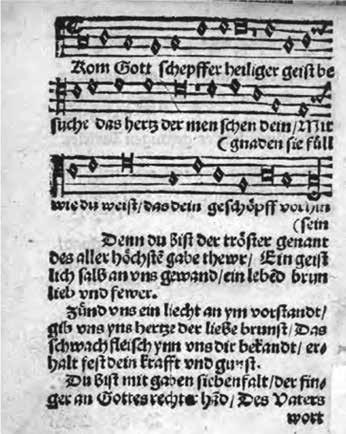 Kom Gott schepffer heiliger geist be
suche das hertz der men schen dein/Mit
(gnaden sie füll
wie du weist/das dein geschöpff vorhin
(sein
Denn du bist der tröster genant
des aller höchstē gabe thewr/ Ein geist
lich salb an vns gewand/ein lebēd brun
lieb vnd fewer.
Zünd vns ein liecht an ym vorstandt/
gib vns yns hertze der liebe brunst/Das
schwach fleisch ynn vns dir bekandt/er-
halt fest dein krafft vnd gunst.
Du bist mit gaben siebenfalt/der fin-
ger an Gottes rechter hād/Des Vaters
wort